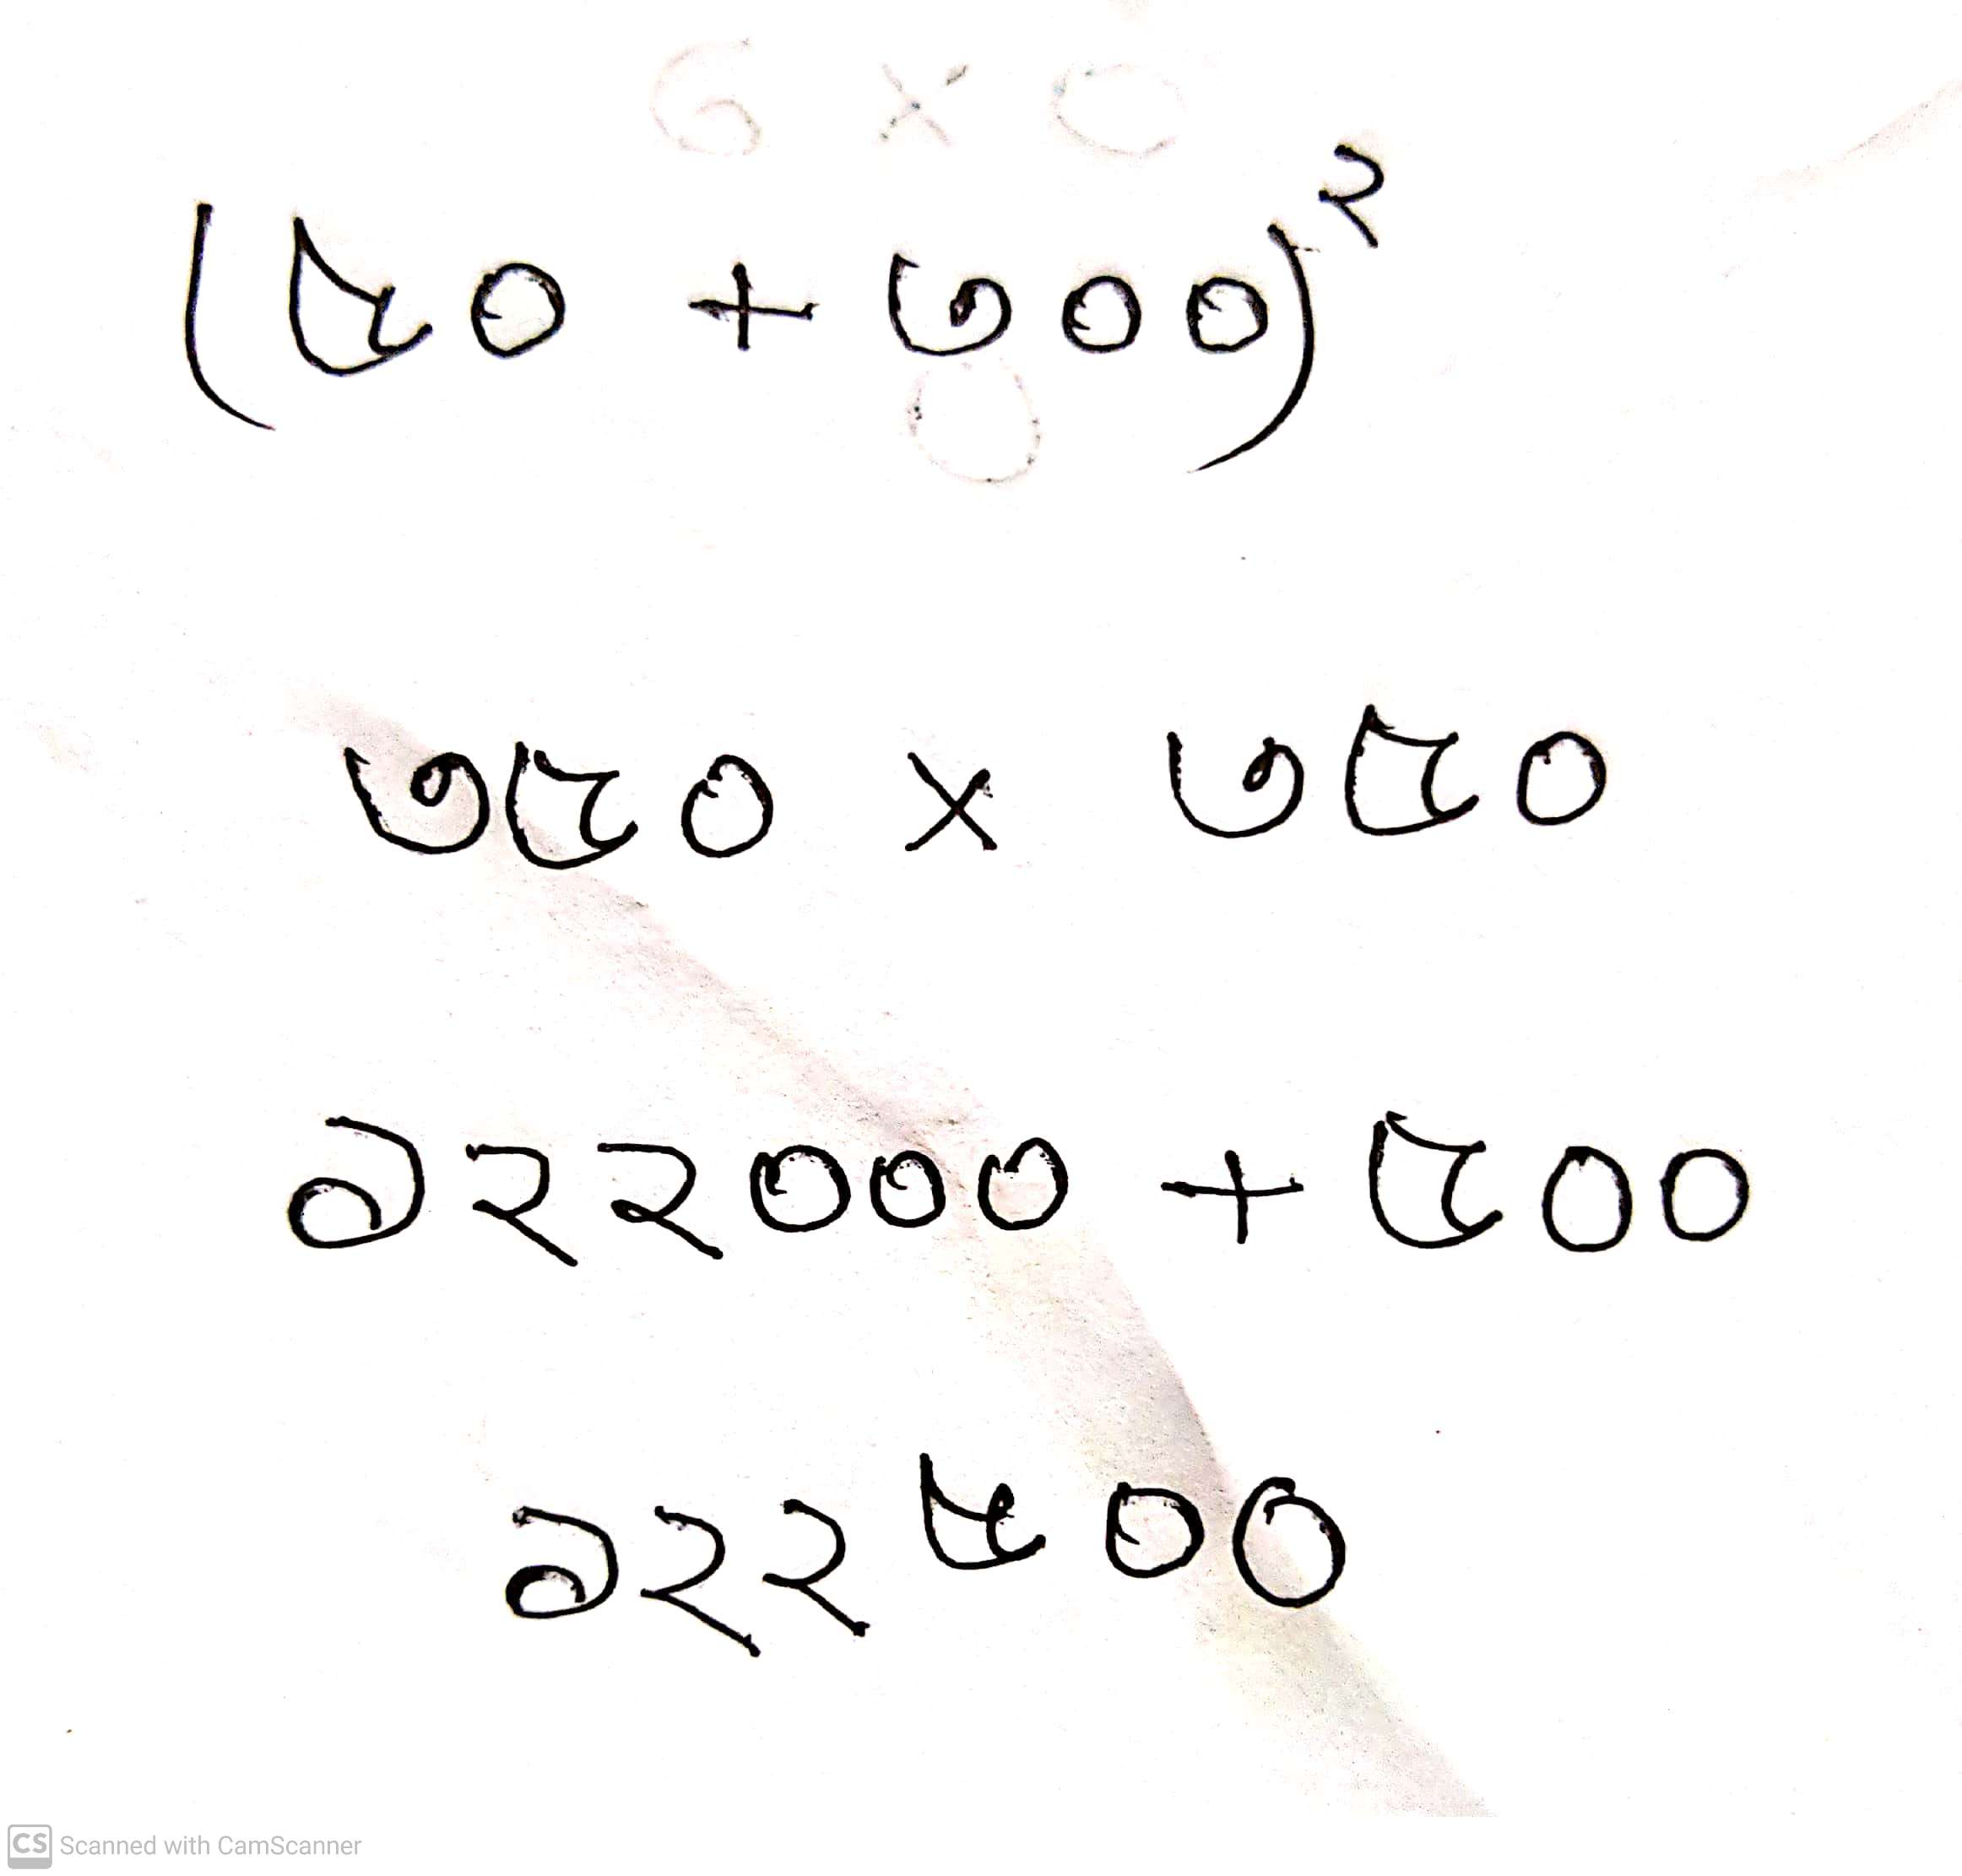 (৫০ + ৩০০)^২
৩৫০ × ৩৫০
১২২০০০ + ৫০০
১২২৫০০
CS Scanned with CamScanner